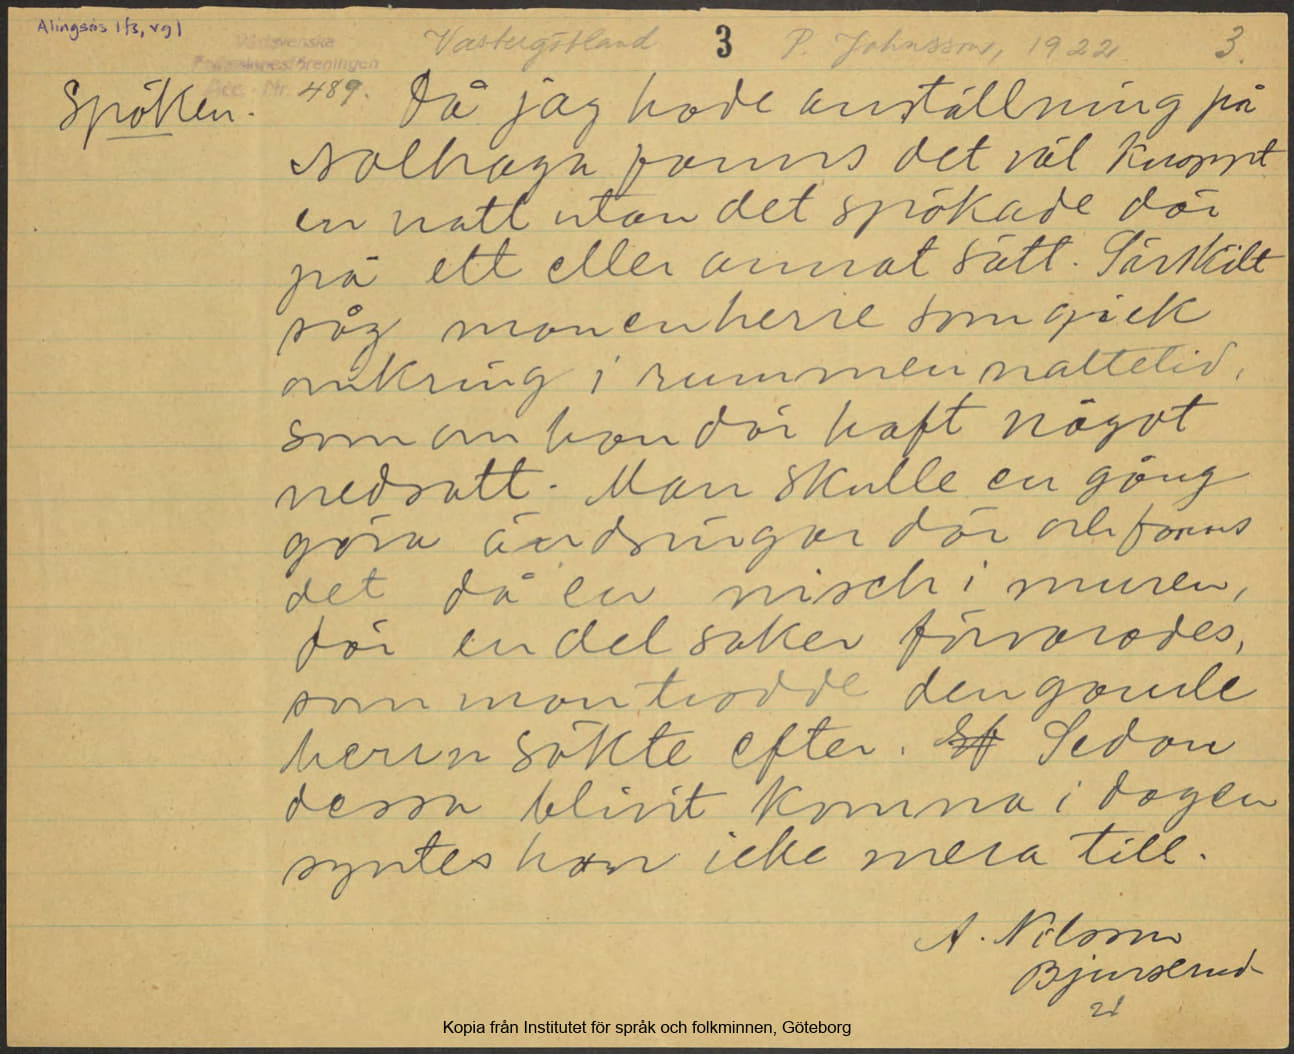 Alingsås lfs, vgl
Västsvenska
Folkminnesföreningen
Acc. Nr. 489.
Västergötland 3 P. Johnsson, 1922 3.
Spöken. Då jag hade anställning på
Solhaga fanns det väl knappt
en natt utan det spökade där
på ett eller annat sätt. Särskilt
såg man en herre som gick
omkring i rummen nattetid,
som om han där haft något
nedsatt. Man skulle en gång
göra ändringar där och fanns
det då en nisch i muren,
där en del saker förvarades,
som man trodde den gamle
herrn sökte efter. Sedan
dessa blivit komna i dagen
syntes han icke mera till.
A. Nilsson
Bjurserud
21
Kopia från Institutet för språk och folkminnen, Göteborg